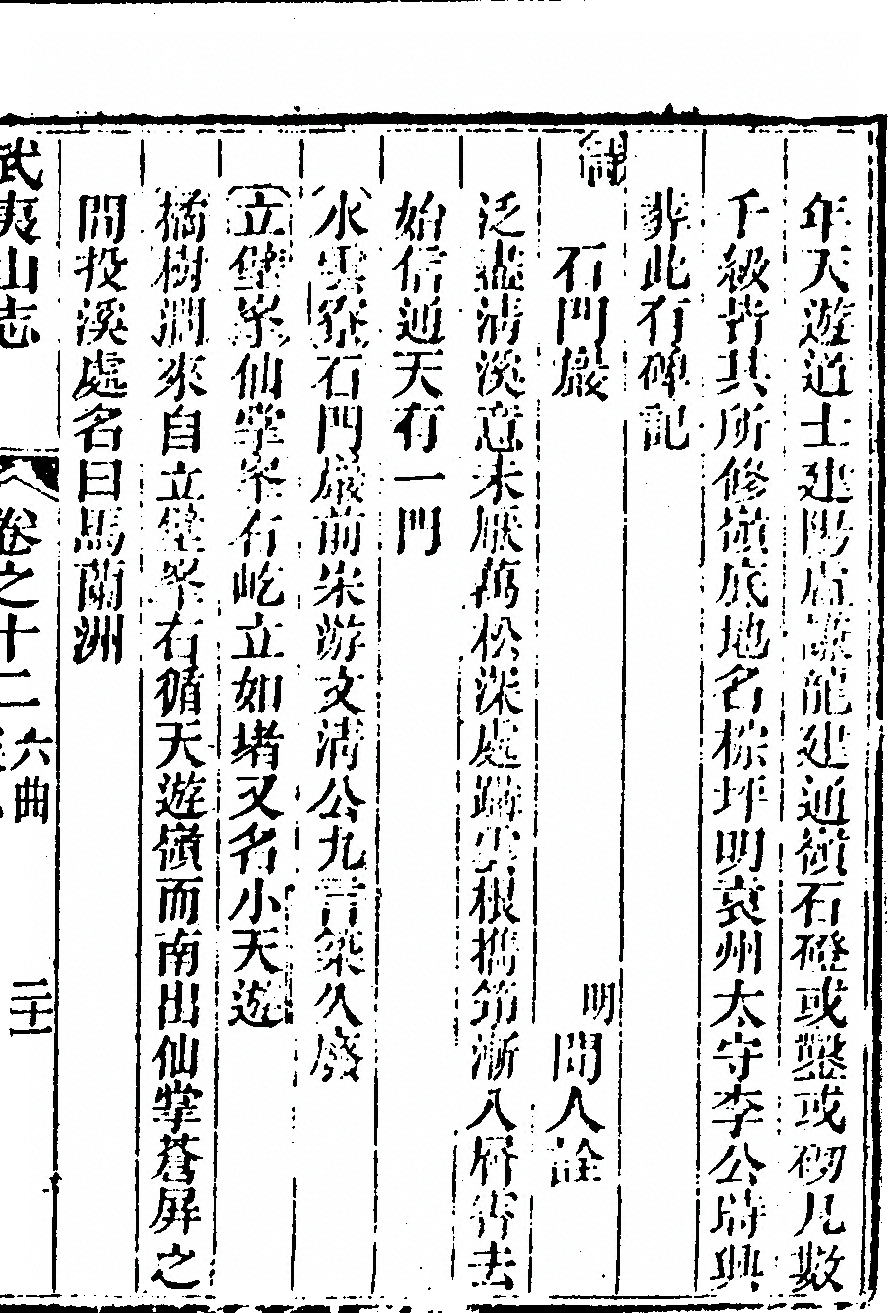 年天遊道士建陽詹本龍建通嶺石磴或鑿或砌凡數
千級皆其所修嶺底地名棕坪明袁州太守李公時興
葬此有碑記
詩
石門巖 明 聞人詮
泛盡清溪意未厭萬松深處躡雲根攜筇漸入層霄去
始信通天有一門
水雲寮石門巖前宋游文清公九言築久廢
立壁峯仙掌峯右屹立如堵又名小天遊
橘樹澗來自立壁峯右循天遊嶺而南出仙掌蒼屏之
間投溪處名曰馬蘭洲
武夷山志 卷之十二 六曲 二十一